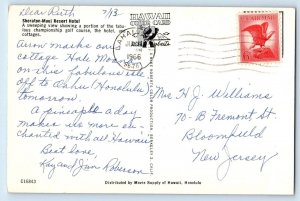 Dear Ruth 7/13
Sheraton-Maui Resort Hotel
A sweeping view showing a portion of the fabulous championship golf course, the hotel, cottages.
HAWAII
LAHAINA
1966
U.S. AIR MAIL
marks our
cottage
on this fabulous isle
off to Oahu/Honolulu
tomorrow.
A pineapple a day
makes us more en-
chanted with all Hawaii
Best love,
Kay and Jim Roberson
Mrs H. J. Williams
70-B Fremont St
Bloomfield
New Jersey
Distributed by Movie Supply of Hawaii, Honolulu